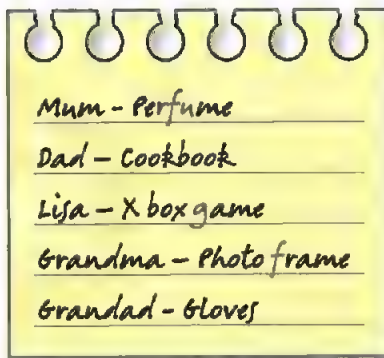 Mum - Perfume
Dad - Cookbook
Lisa - X box game
Grandma - Photo frame
Grandad - Gloves